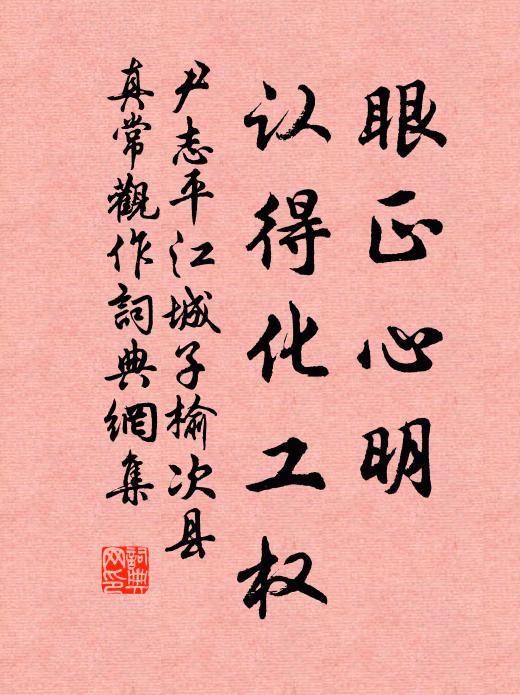 眼正心明
认得化工权
尹志平江城子榆次县
真常觀作詞典網集
詞典网印